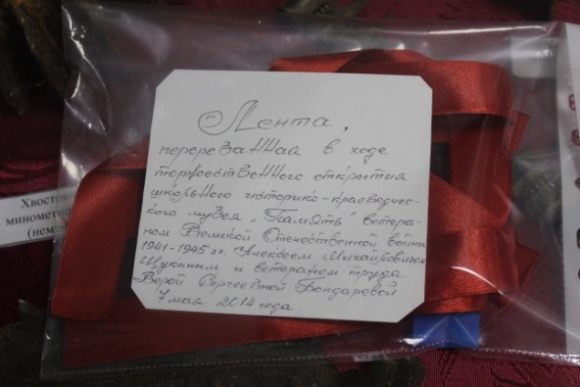 Лента,
перерезанная в ходе
торжественного открытия
школьного историко-краеведчес-
кого музея „Память" ветера-
ном Великой Отечественной войны
1941-1945 гг. Алексеем Михайловичем
Щукиным и ветераном труда
Верой Сергеевной Бондаревой
7 мая 2014 года
Хвостов
миномет
(нем